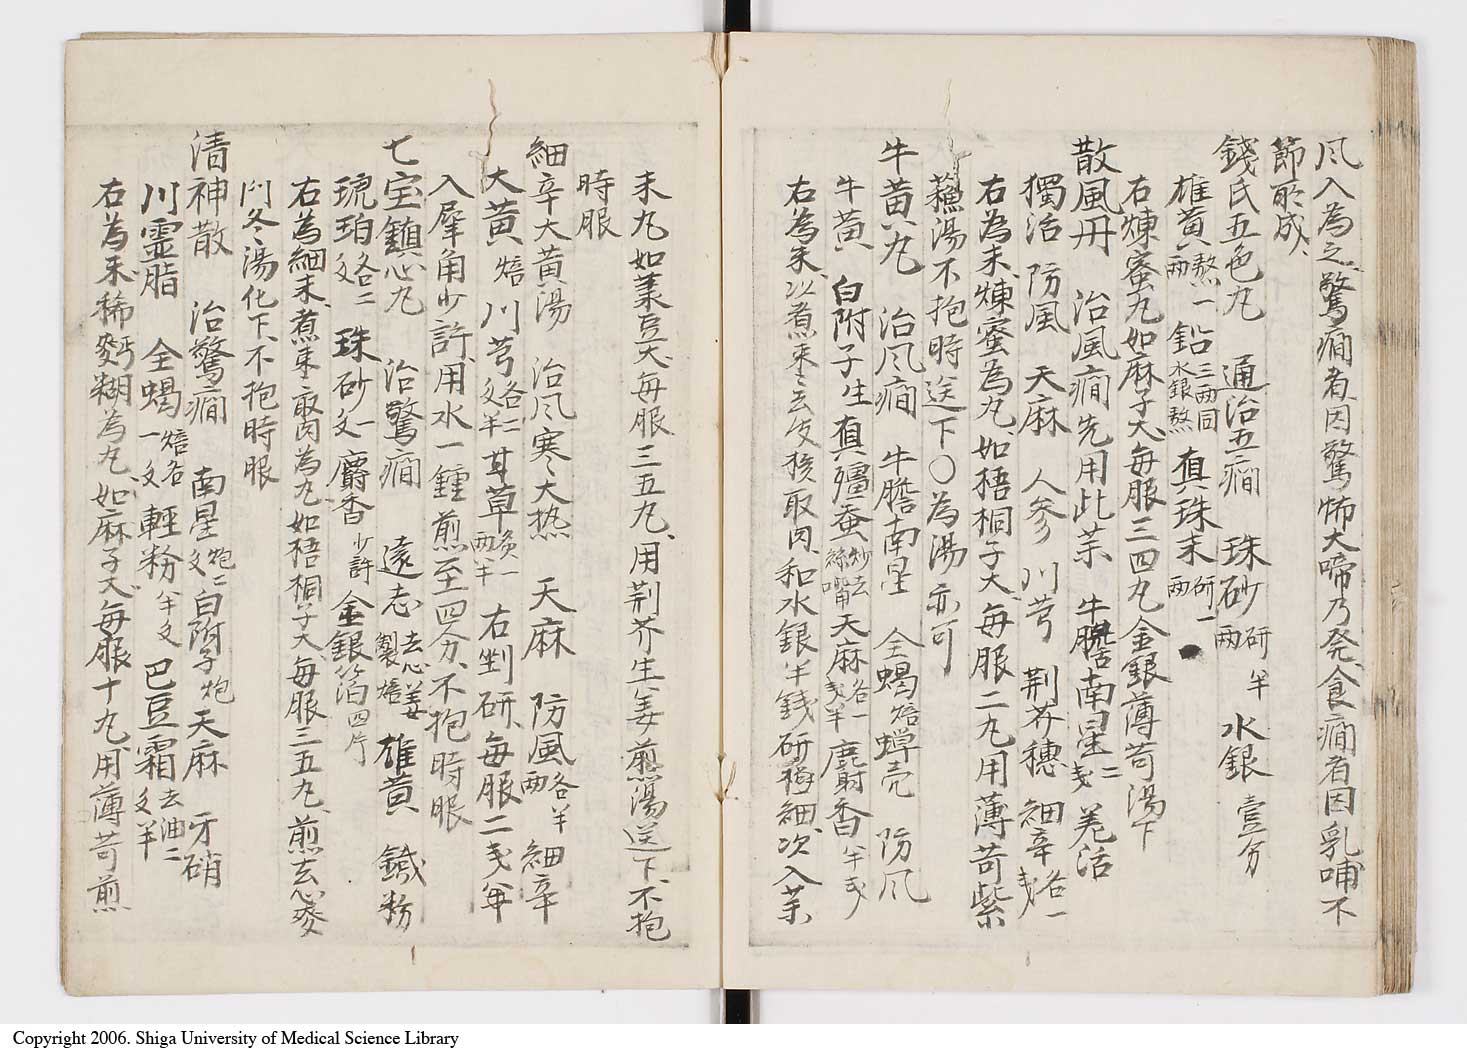 风入為之、驚癇者、因驚怖大啼乃発、食癇者因乳哺不
節所成、
錢氏五色丸 通治五癇 珠砂研半両 水銀壹分
雄黄熬一両 鉛三両同水銀熬 真珠末研一両
右煉蜜丸如麻子大、毎服三四丸金銀薄苛湯下
散風丹 治風癇先用此茶 牛膽南星二戔 羌活
獨活 防風 天麻 人參 川芎 荆芥穗 細辛各一戔
右為末、煉蜜為丸、如梧桐子大、毎服二丸用薄苛紫
蘓湯不抱時送下〇為湯亦可
牛黄丸 治风癇 牛膽南星 全蝎焙 蝉壳 防风
牛黄 白附子生 真殭蚕炒去絲嘴 天麻各一戔半 麝香半戔
右為末、以煮棗去皮核取肉、和水銀半錢研極細、次入茶
末丸如菉豆大、毎服三五丸、用荆芥生姜煎湯送下、不抱
時服
細辛大黄湯 治风寒大热 天麻 防風各半両 細辛
大黄焙 川芎各二文半 甘草炙一両半 右剉研、毎服二戔半
入犀角少許、用水一鍾煎至四分、不抱時服
七宝鎮心丸 治驚癇 遠志去心姜製焙 雄黄 鐵粉
琥珀各二文 珠砂一文 麝香少許 金銀箔四片
右為細末、煮棗取肉為丸、如梧桐子大毎服三五丸、煎去心麥
門冬湯化下、不抱時服
清神散 治驚癇 南星炮二文 白附子炮 天麻 牙硝
川霊脂 全蝎焙各一文 輕粉半文 巴豆霜去油二文半
右為末、稀麪糊為丸、如麻子大、毎服十丸、用薄苛煎